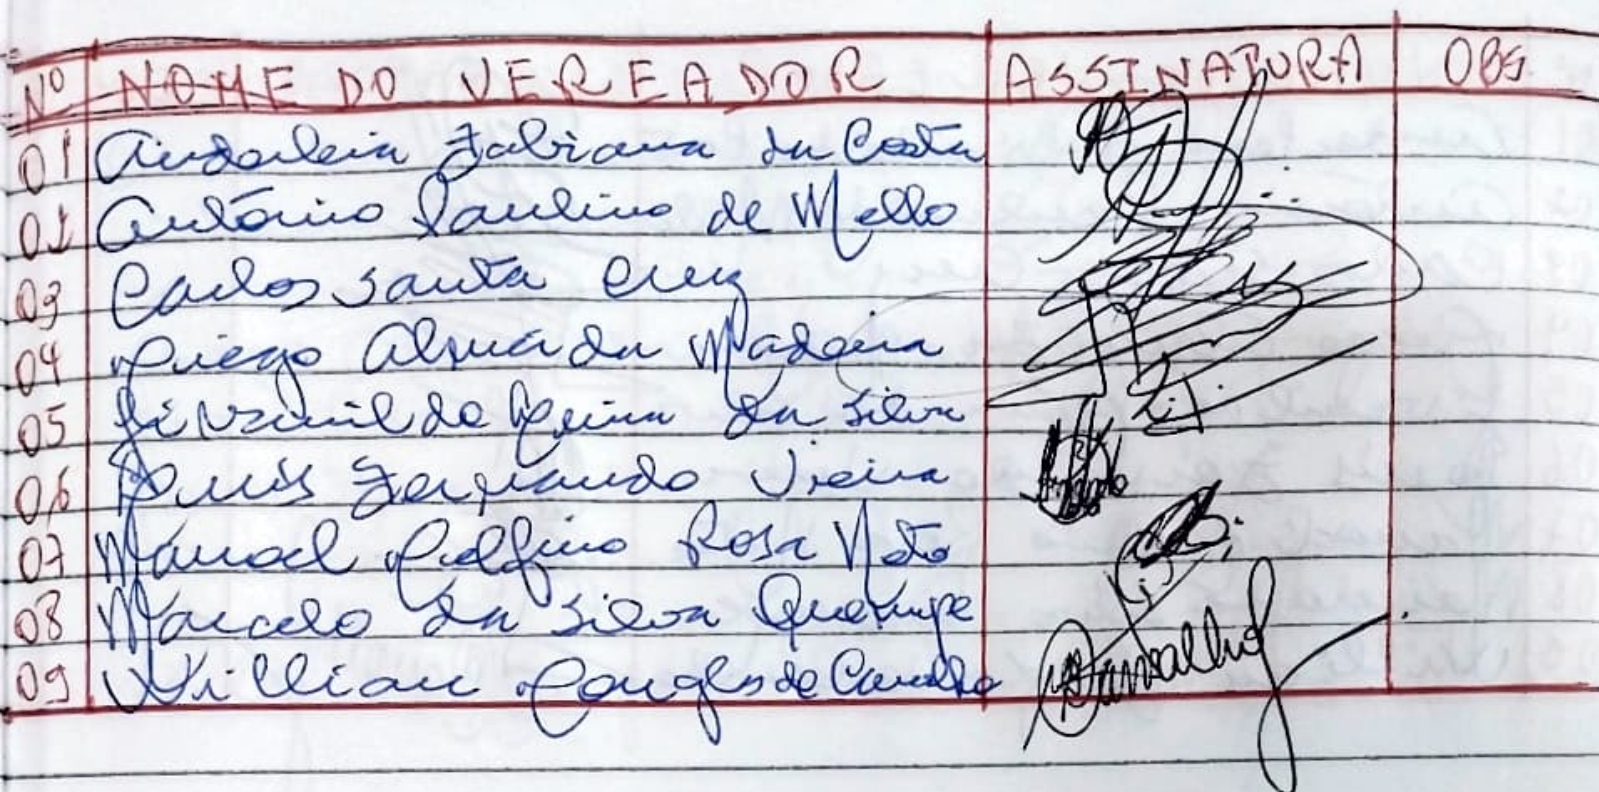 Nº NOME DO VEREADOR ASSINATURA OBS.
01 Audenleia Fabiana da Costa
02 Antônio Paulino de Mello
03 Carlos Santa Cruz
04 Diego Almada Madeira
05 de Lima da Silva
06 Luís Fernando Vieira
07 Manoel Delfino Rosa Neto
08 Marcelo da Silva
09 Willian Douglas de Carvalho Carvalho